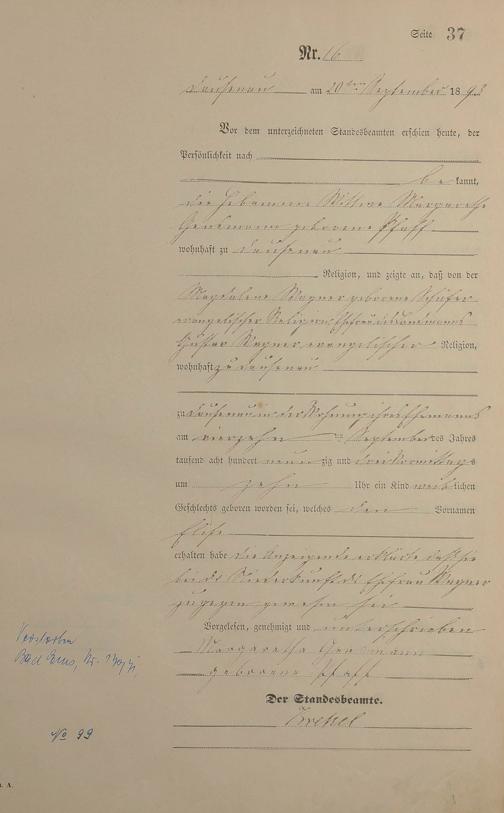 Seite 37
Nr. 16
Dausenau am 20ten September 1893
Vor dem unterzeichneten Standesbeamten erschien heute, der
Persönlichkeit nach
be kannt,
die Hebamme Wittwe Margaretha
geborene Pfaff
wohnhaft zu Dausenau
Religion, und zeigte an, daß von der
Magdalene Wagner geborene Schäfer
evangelischer Religion Ehefrau des
Gustav Wagner evangelischer Religion,
wohnhaft zu Dausenau
zu Dausenau in der Wohnung ihres Ehemanns
am vierzehn ten September des Jahres
tausend acht hundert neun zig und drei Vormittags
um zehn Uhr ein Kind weiblichen
Geschlechts geboren worden sei, welches den Vornamen
Elise
erhalten habe die Anzeigende erklärte daß sie
bei der Niederkunft der Ehefrau Wagner
zugegen gewesen sei
Vorgelesen, genehmigt und unterschrieben
Margaretha
geborene Pfaff
Der Standesbeamte.
Verstorben
Bad Ems, Nr.
No 99